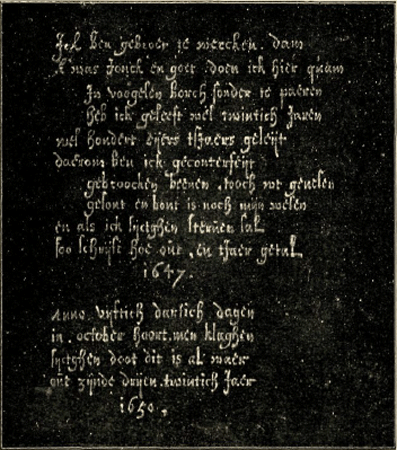 Ick ben gebroer te mercken. dam
K was Jonick en goet. doen ick hier quam
In voogelen borch sonder te paeren
heb ick geleeft wel twintich Jaren
wel hondert eijers tsJaers geleijt
daerom ben ick geconterfeijt
gebroocken beenen, noch
gesont en bont is noch mijn wesen
en als ick sijctghen sterven sal
soo schrijft hoe out, en tJaer getal
1647.
Anno. vijftich dartich dagen
in. october hoort. men klaghen
sijctghen doot dit is al waer
out zijnde drijen. twintich Jaer
1650.